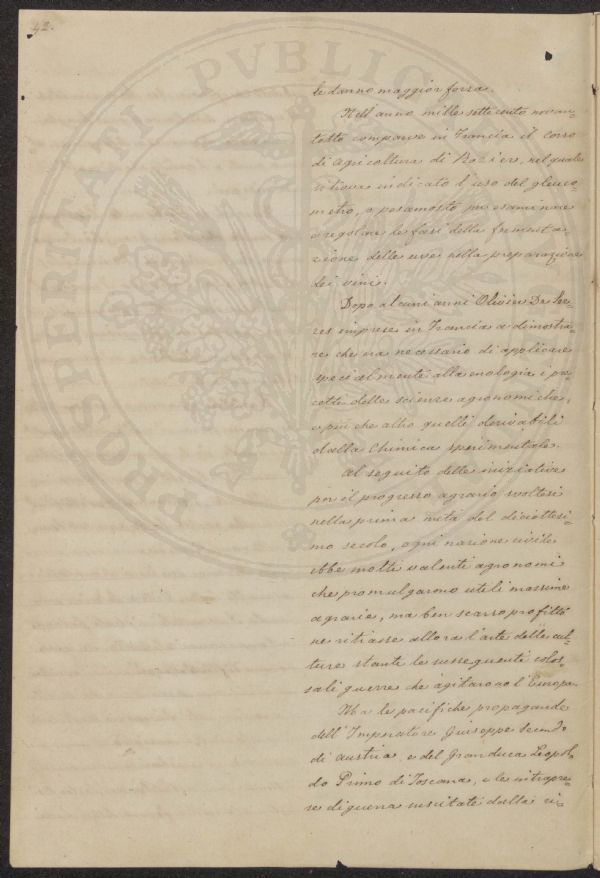 42.
PROSPERITATI PVBLIC
le danno maggior forza.
Nell' anno mille sette cento novan=
totto comparve in Francia il corso
di agricoltura di Roziers, nel quale
si trova indicato l'uso del gleuco=
metro, o pesamosto per esaminare
e regolare le fasi della fermenta=
zione delle uve nella preparazione
dei vini.
Dopo alcuni anni Olivier De Ser=
res imprese in Francia a dimostra=
re che era necessario di applicare
specialmente alla enologia i pre=
cetti delle scienze agronomiche,
e più che altro quelli derivabili
dalla Chimica sperimentale.
Al seguito delle iniziative
per il progresso agrario svoltesi
nella prima metà del diciottesi=
mo secolo, ogni nazione civile
ebbe molti valenti agronomi
che promulgarono utili massime
agrarie, ma ben scarso profitto
ne ritrasse allora l'arte delle cul=
ture stante le susseguenti colos=
sali guerre che agitarono l'Europa.
Ma le pacifiche propagande
dell' Imperatore Giuseppe Secondo
di Austria, e del Granduca Leopol=
do Primo di Toscana, e le intrapre=
se di guerra suscitate dalla ri=